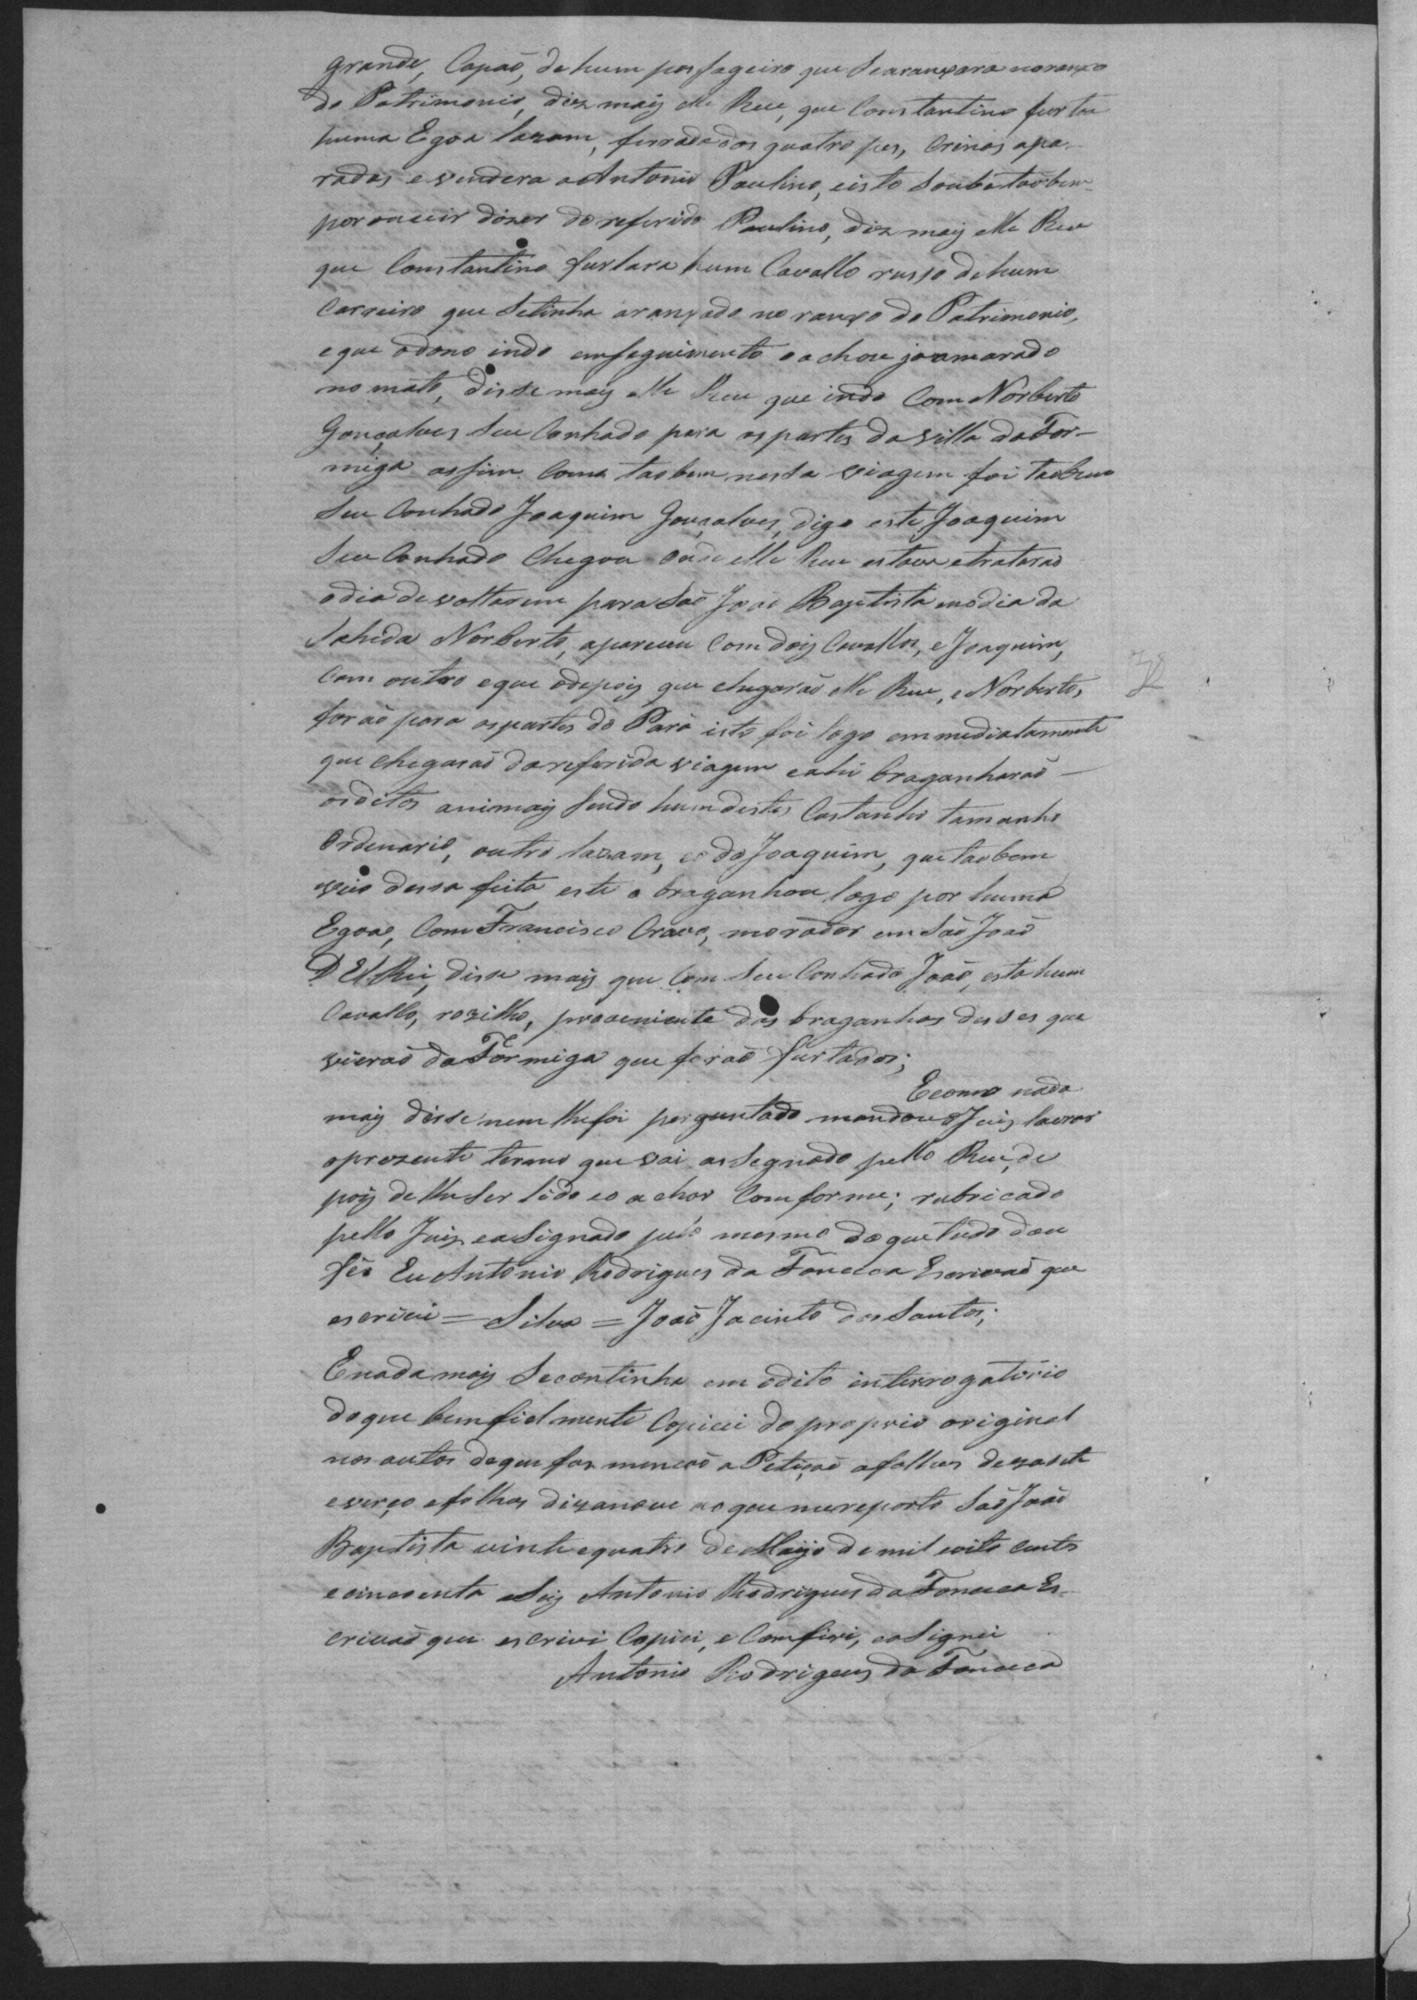 grande, Capaõ, de hum passageiro que se aranxara no ranxo
do Patrimonio, diz mais elle Reu, que Constantino furtou
huma Egoa lazam, ferrada dos quatro pes, crinas apa-
radas e vendera a Antonio Paulino, e isto soube taobem
por ouvir dizer do referido Paulino, diz mais elle Reu
que Constantino furtara hum Cavallo russo de hum
carreiro que se tinha aranxado no ranxo do Patrimonio,
e que o dono indo em seguimento o achou ja amarado
no mato, disse mais elle Reu que indo com Norberto
Gonçalves seu Conhado para as partes da villa da For-
miga assim como taobem nessa viagem foi taobem
seu Conhado Joaquim Gonçalves, digo este Joaquim
seu Conhado chegou onde elle Reu estava e trataraõ
o dia de voltarem para Saõ Joaõ Baptista e no dia da
sahida Norberto, apareceu com dois Cavallos, e Joaquim,
com outro e que odepois que chegaraõ elle Reu, e Norberto,
foraõ para as partes do Pará isto foi logo emmediatamente
que chegaraõ da referida viagem e ahi braganharaõ
os ditos animais sendo hum destes Castanho tamanho
ordenario, outro lazam, e o do Joaquim, que taobem
veio dessa feita este o braganhou logo por huma
Egoa, com Francisco Cravo, morador em Saõ Joaõ
D El Rei, disse mais que com seu Conhado Joaõ, esta hum
Cavallo, rozilho, proveniente das braganhas desses que
vieraõ da Formiga que foraõ furtados;
E como nada
mais disse nem lhe foi perguntado mandou o Juis lavrar
o prezente termo que vai assegnado pello Reu, de
pois de lhe ser lido e o achar comforme; rubricado
pello Juiz e asignado pelo mesmo do que tudo dou
fé Eu Antonio Rodrigues da Fonceca Escrivaõ que
escrivi = Silva = Joaõ Jacinto dos Santos;
E nada mais se continha em o dito interrogatorio
do que bem fielmente Copiei do proprio original
nos autos de que faz mencaõ a Petiçaõ a folhas dezasete
e verço e folhas dizanove ao que me reporto Saõ Joaõ
Baptista vinte e quatro de Maijo de mil oito centos
e cincoenta e seis Antonio Rodrigues da Fonceca Es-
crivaõ que escrivi Copiei, e Comfiri, e asignei
Antonio Rodrigues da Fonceca